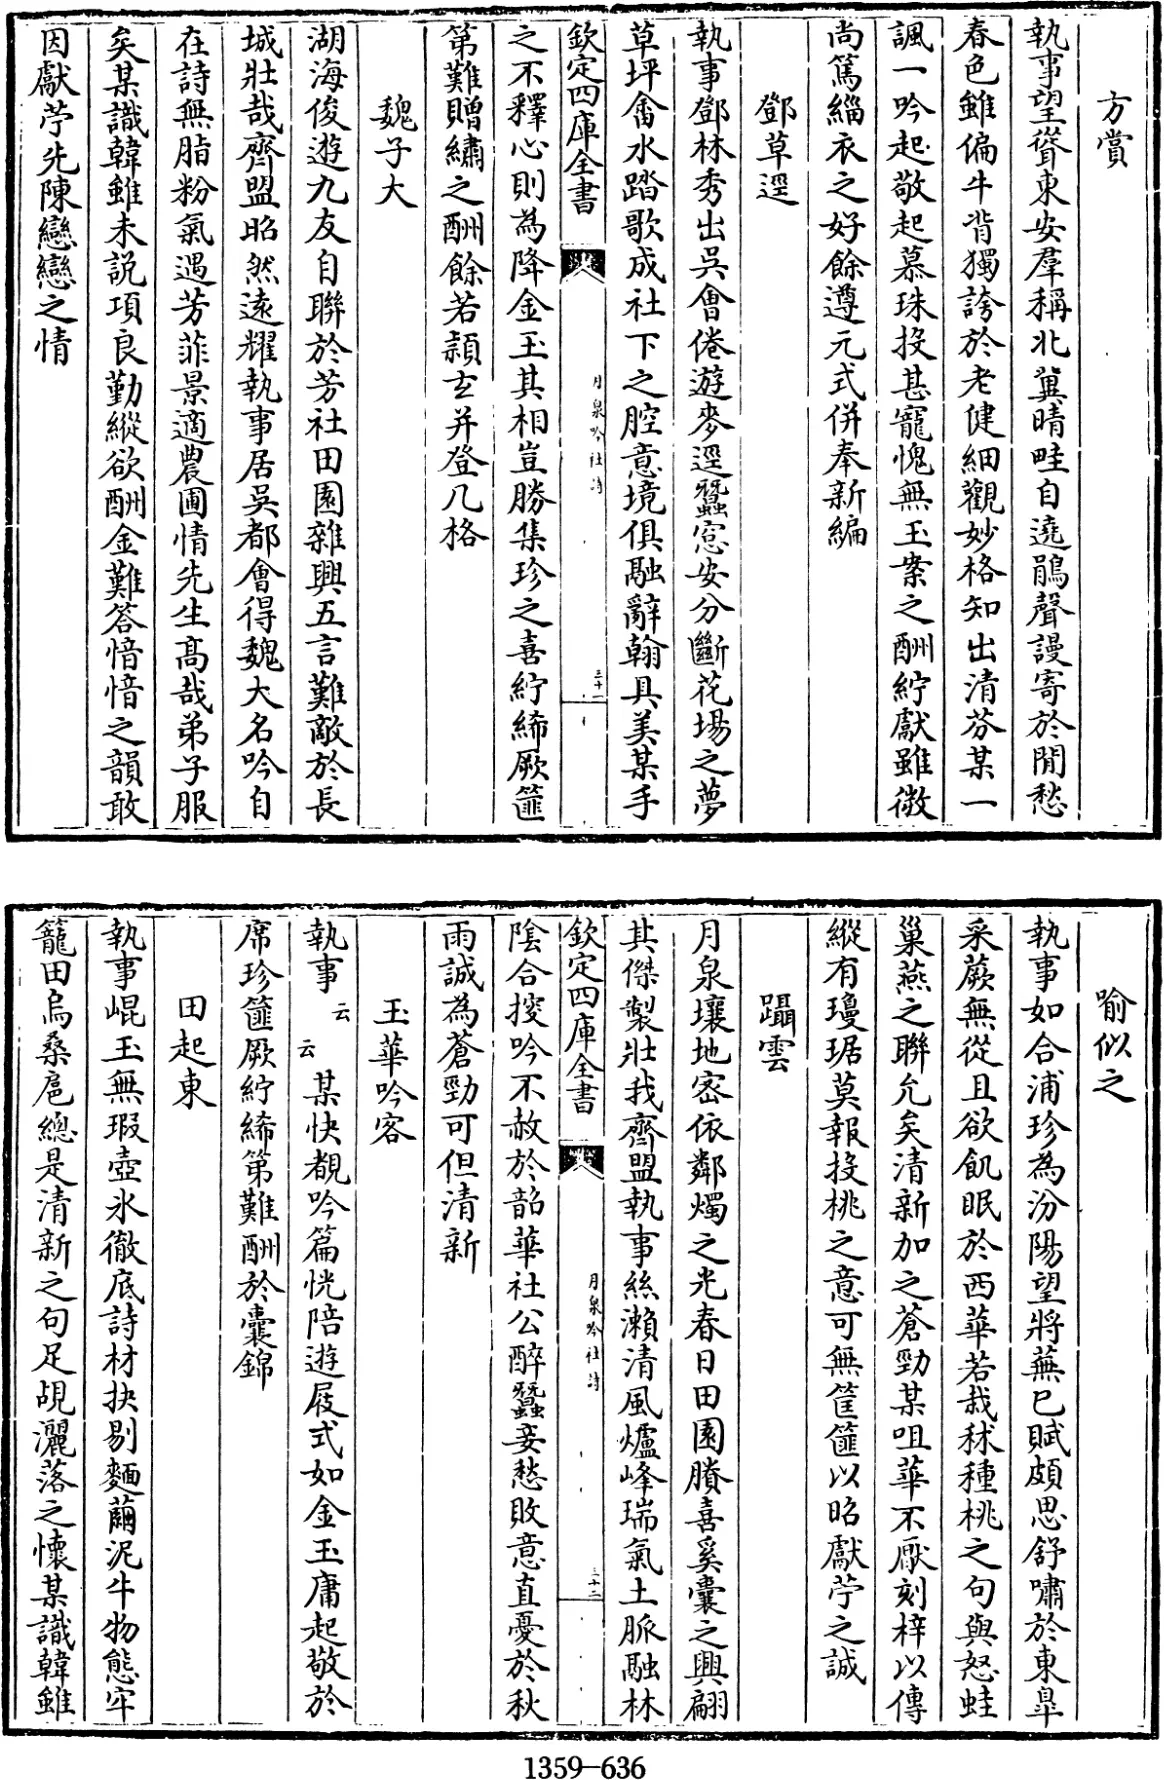 方賞
執事望聳東安羣稱北冀晴畦自遶鵑聲謾寄於閒愁
春色雖偏牛背獨誇於老健細觀妙格知出清芬某一
諷一吟起敬起慕珠投甚寵愧無玉案之酬紵獻雖微
尚篤緇衣之好餘遵元式併奉新編
鄧草逕
執事鄧林秀出吳會倦遊麥逕蠶窓安分斷花場之夢
草坪畬水踏歌成社下之腔意境俱融辭翰具美某手
欽定四庫全書
月泉吟社詩
三十一
之不釋心則為降金玉其相豈勝集珍之喜紵絺厥篚
第難贈繡之酬餘若頴玄并登几格
魏子大
湖海俊遊九友自聯於芳社田園雜興五言難敵於長
城壯哉齊盟昭然遠耀執事居吳都會得魏大名吟自
在詩無脂粉氣遇芳菲景適農圃情先生髙哉弟子服
矣某識韓雖未說項良勤縱欲酬金難答愔愔之韻敢
因獻苧先陳戀戀之情
喻似之
執事如合浦珍為汾陽望將蕪已賦頗思舒嘯於東皐
采蕨無從且欲飢眠於西華若栽秫種桃之句與怒蛙
巢燕之聨允矣清新加之蒼勁某咀華不厭刻梓以傳
縱有瓊琚莫報投桃之意可無筐篚以昭獻苧之誠
躡雲
月泉壤地密依鄰燭之光春日田園賸喜奚囊之興翩
其傑製壯我齊盟執事絲瀨清風爐峰瑞氣土脈融林
欽定四庫全書
月泉吟社詩
三十二
陰合挼吟不赦於韶華社公醉蠶妾愁敗意直憂於秋
雨誠為蒼勁可但清新
玉華吟客
執事云云某快覩吟篇恍陪遊屐式如金玉庸起敬於
席珍篚厥紵絺第難酬於囊錦
田起東
執事崐玉無瑕壺氷徹底詩材抉剔麵繭泥牛物態牢
籠田烏桑扈總是清新之句足覘灑落之懷某識韓雖
1359-636